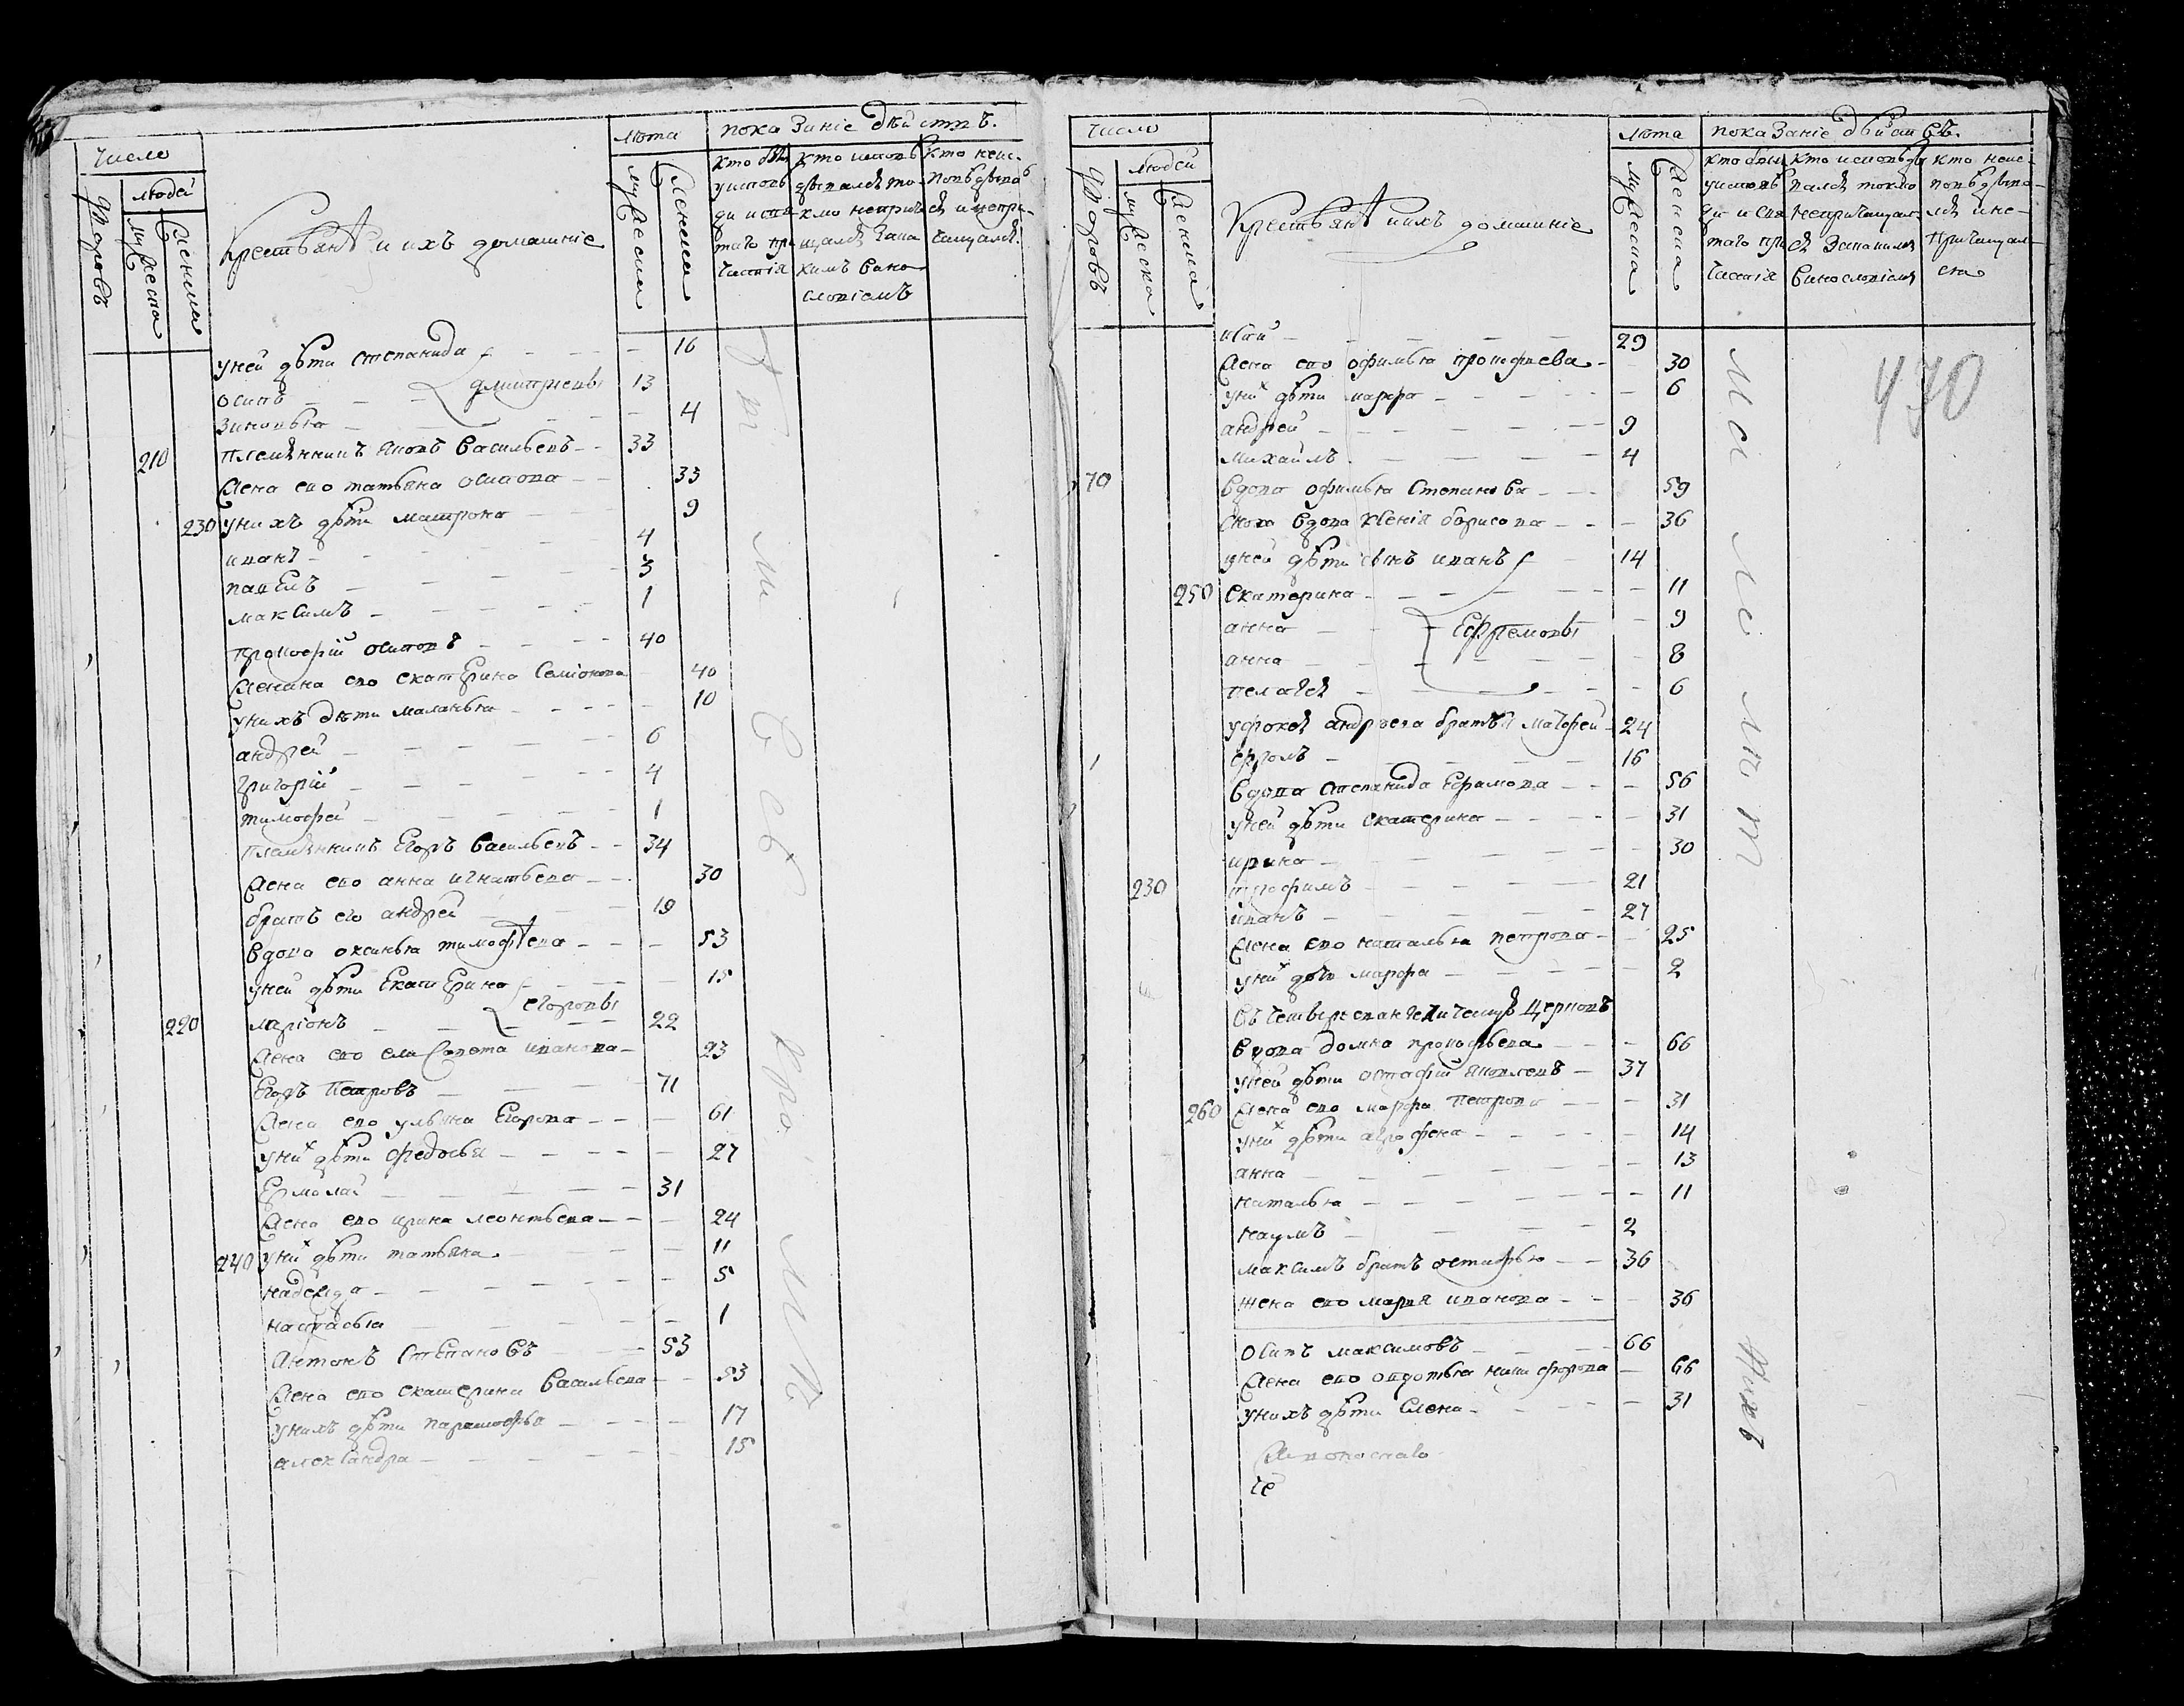 Число
людей
дворовъ
мужеска
женска
Крестьянѣ и ихъ домашнiе
лѣта
мужеска
женска
показанiе дѣйствъ.
кто былъ
у исповѣ
ди и свя
таго при
частiя
кто исповѣ
дывался то
кмо неприча
щался зака
кимъ вино
словiемъ
кто неис
повѣдыва
ся и непри
чащался
у ней дѣти степанида 16
осипъ дмитрiевы 13
зиновья 4
210 племянникъ яковъ васильевъ 33
жена ево татьяна осипова 33
230 у нихъ дѣти матрона 9
иванъ 4
павелъ 3
максимъ 1
прокофiй осиповъ 40
женина ево екатерина семiонова 40
у нихъ дѣти маланья 10
андрей 6
григорiй 4
тимофей 1
племянникъ Егоръ васильевъ 34
жена ево анна игнатьева 30
братъ его андрей 19
вдова оксинья тимофѣева 53
у ней дѣти Екатерина 15
220 ларiонъ егоровы 22
жена ево елисавета иванова 23
Егоръ Петровъ 71
жена ево ульяна Егорова 61
у них дѣти федосья 27
Ермолай 31
жена ево ирина леонтьева 24
240 у них дѣти татьяна 11
надежда 5
настасья 1
Антонъ Степановъ 53
жена ево екатерина васильева 53
у нихъ дѣти парасковья 17
александра 15
Число
людей
дворовъ
мужеска
женска
Крестьянѣ и ихъ домашнiе
лѣта
мужеска
женска
показанiе дѣйствъ.
кто былъ
у исповѣ
ди и свя
таго при
частiя
кто исповѣды
вался токмо
непричащал
ся закакимъ
винословiемъ
кто неис
повѣдыва
лся и не
причащал
ся
430
исай 29
жена ево офимья прокофиева 30
у них дѣти марфа 6
андрей 9
михайлъ 4
70 вдова офимья степанова 59
сноха вдова ксенiя борисова 36
у ней дѣти сынъ иванъ 14
250 екатерина 11
анна Ефремовы 9
анна 8
пелагея 6
у фокея андреева братья матфей 24
фролъ 16
вдова степанида Ефимова 56
у ней дѣти екатерина 31
ирина 30
230 трофимъ 21
иванъ 27
жена ево наталья петрова 25
у них дочь марфа 2
вдова домна прокофьева 66
у ней дѣти остафiй яковлевъ 37
260 жена ево марфа петрова 31
у них дѣти агрофена 14
анна 13
наталья 11
наумъ 2
максимъ братъ остафью 36
жена ево марья иванова 36
осипъ максимовъ 66
жена ево овдотья никифорова 66
у нихъ дѣти елена 31